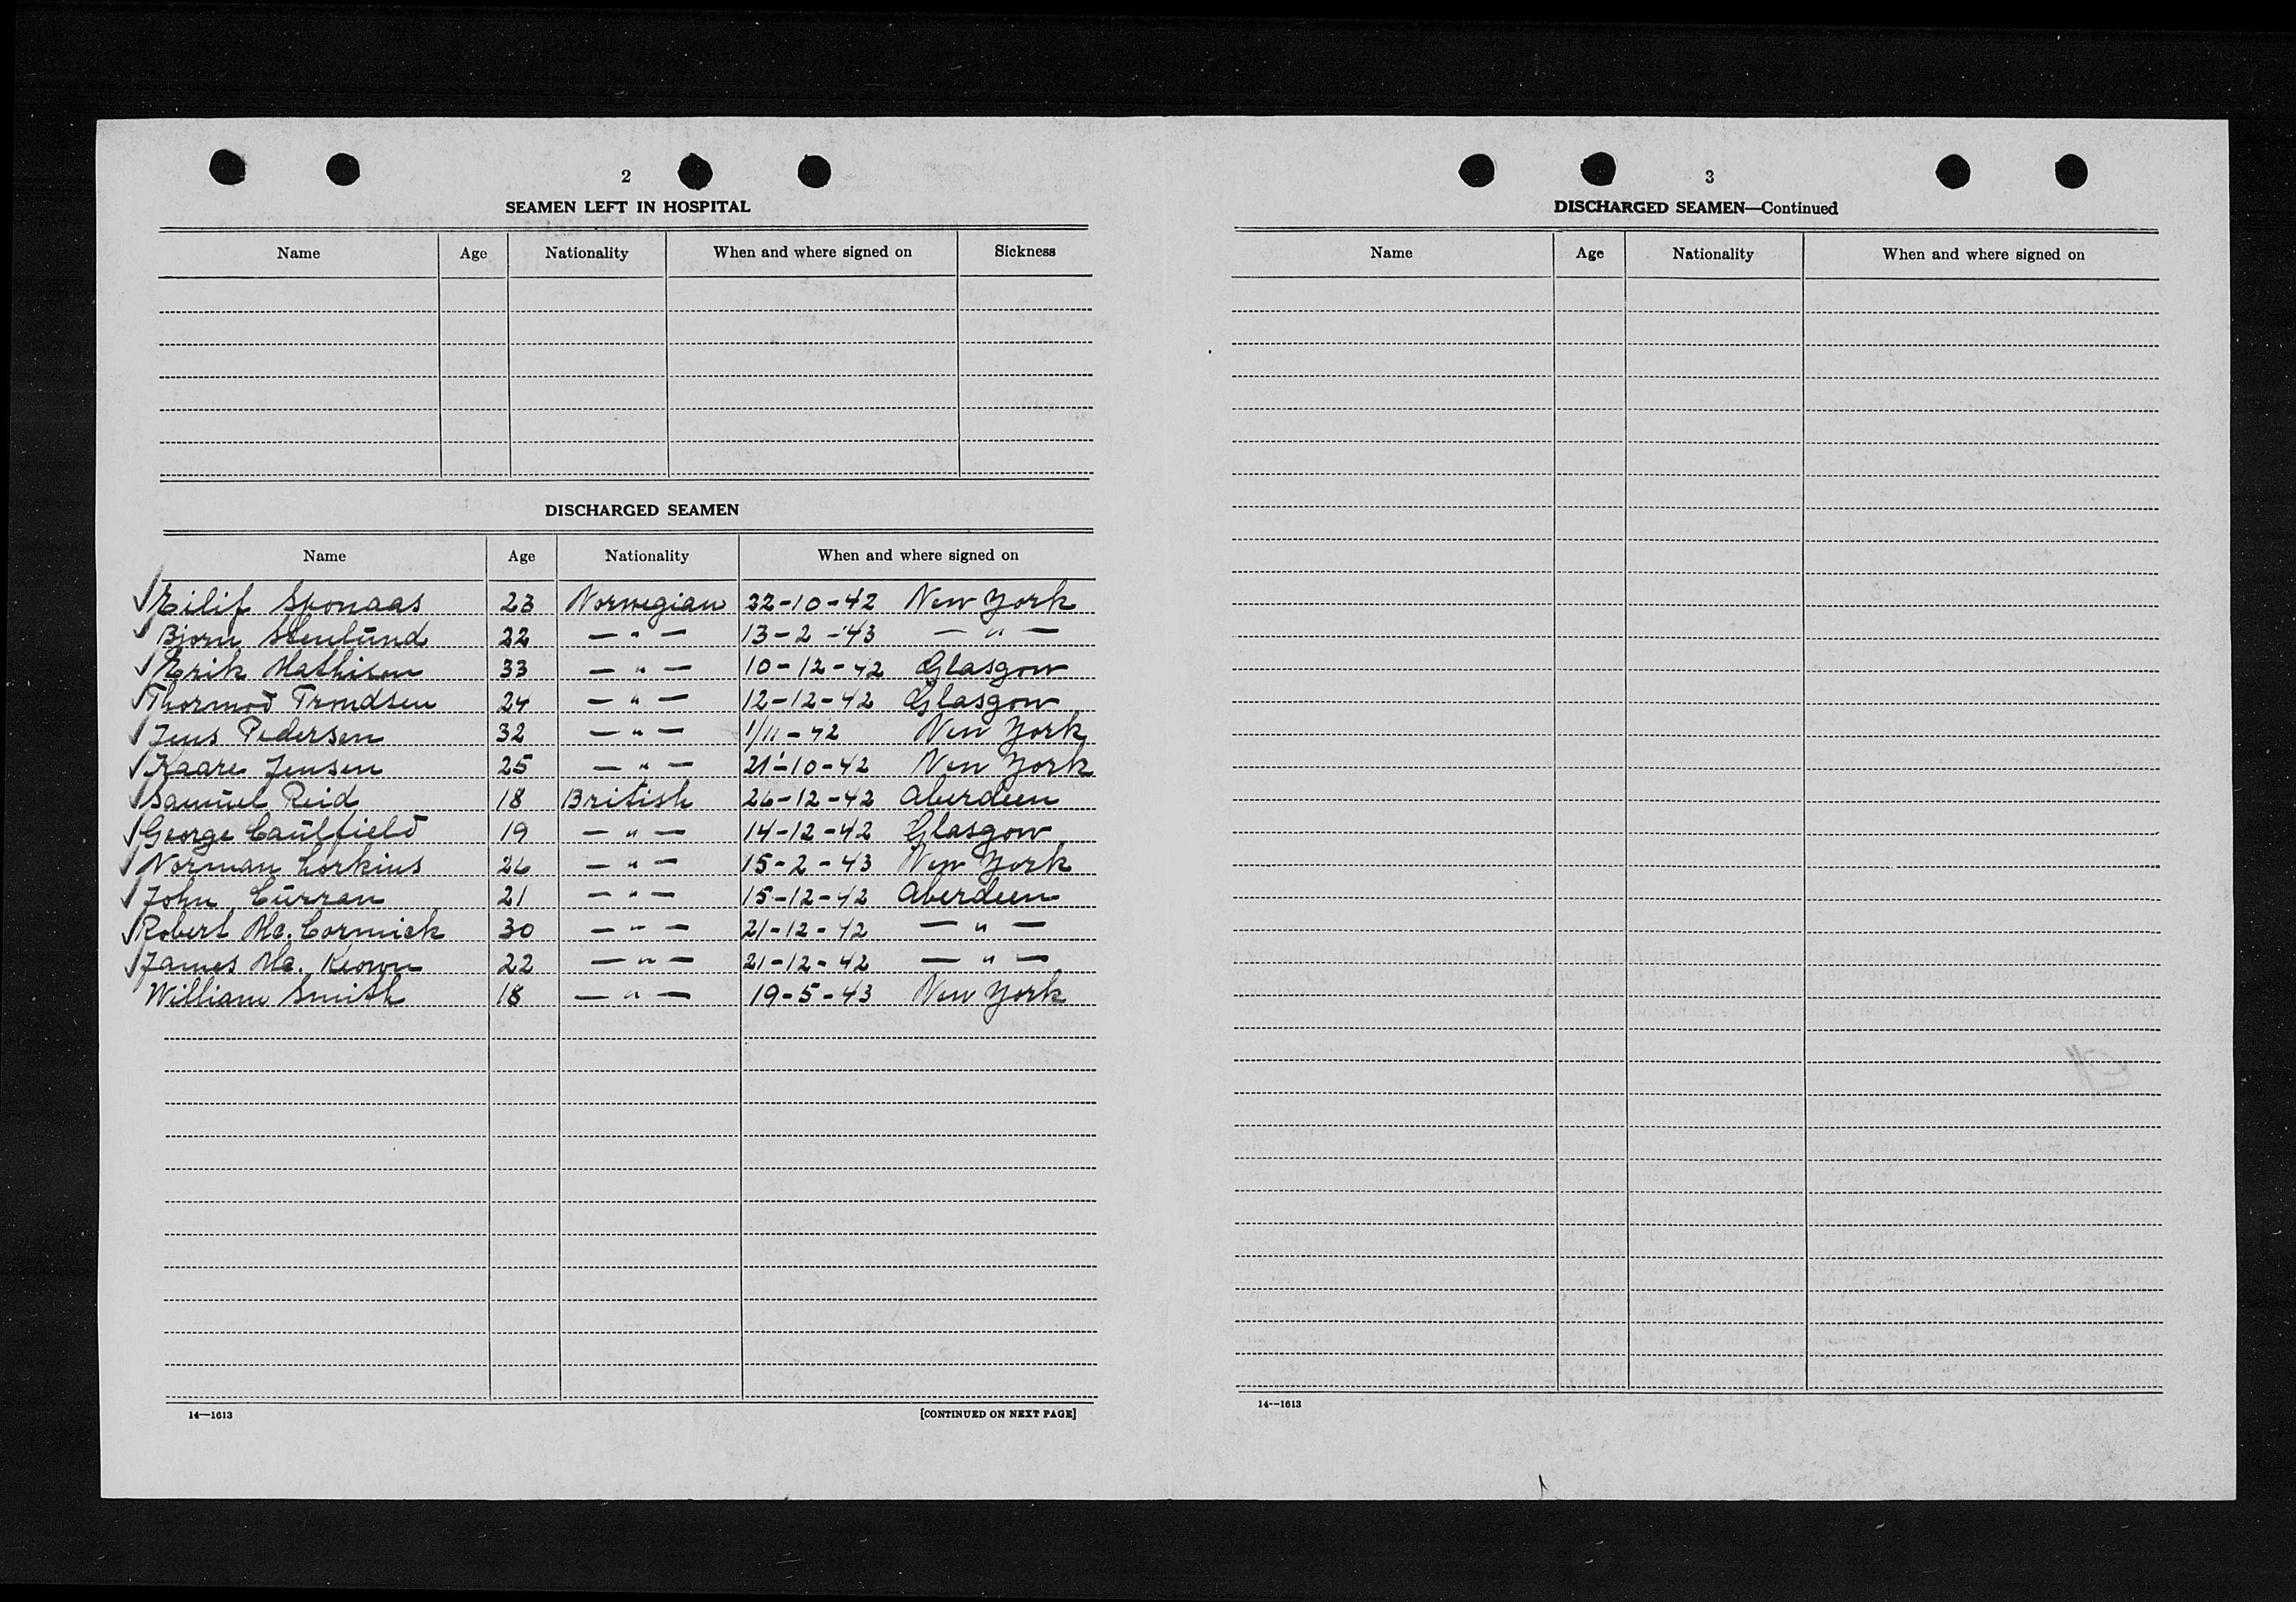 2
SEAMEN LEFT IN HOSPITAL
Name Age Nationality When and where signed on Sickness
DISCHARGED SEAMEN
Name Age Nationality When and where signed on
√ Eilif Sponaas 23 Norwegian 22-10-42 New York
√ Bjorn Stenlund 22 — " — 13-2-43 — " —
√ Erik Mathisen 33 — " — 10-12-42 Glasgow
√ Thormod Trondsen 24 — " — 12-12-42 Glasgow
√ Jens Pedersen 32 — " — 1/11-42 New York
√ Kaare Jensen 25 — " — 21-10-42 New York
√ Samuel Reid 18 British 26-12-42 Aberdeen
√ George Caulfield 19 — " — 14-12-42 Glasgow
√ Norman Lorkins 26 — " — 15-2-43 New York
√ John Curran 21 — " — 15-12-42 Aberdeen
√ Robert Mc. Cormick 30 — " — 21-12-42 — " —
√ James Mc. Keown 22 — " — 21-12-42 — " —
William Smith 18 — " — 19-5-43 New York
14—1613 [CONTINUED ON NEXT PAGE]
3
DISCHARGED SEAMEN—Continued
Name Age Nationality When and where signed on
14--1613